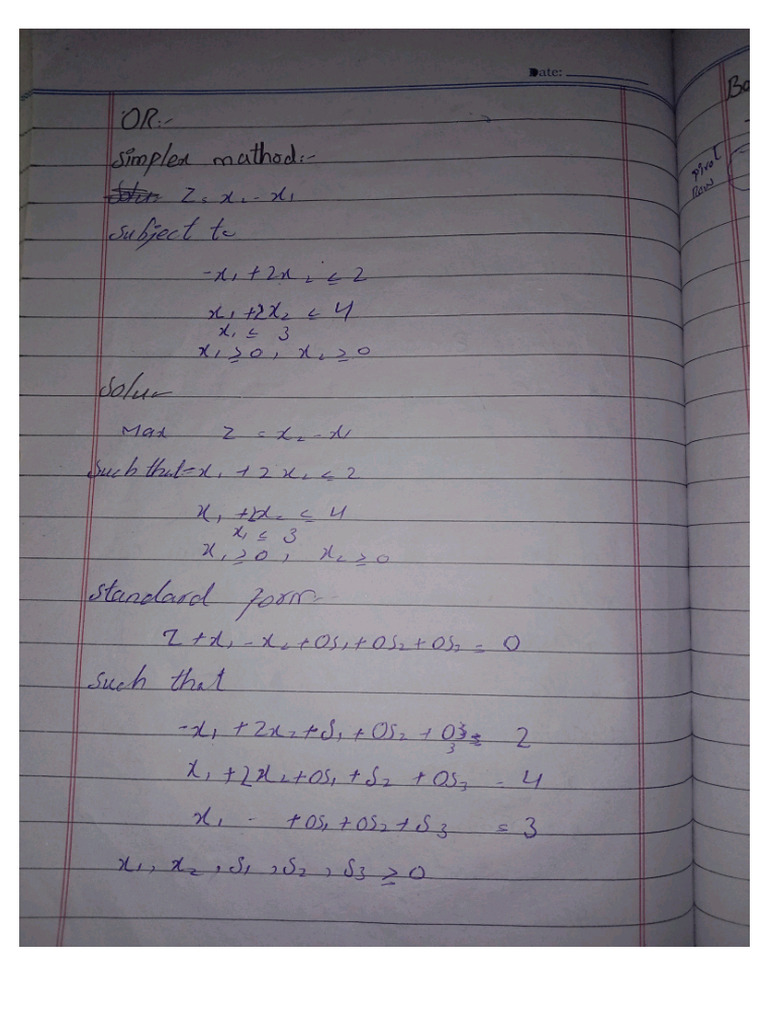 Date:
OR:-
Simplex mathod:-
Z = x₂ - x₁
Subject to
-x₁ + 2x₂ ≤ 2
x₁ + 2x₂ ≤ 4
x₁ ≤ 3
x₁ ≥ 0, x₂ ≥ 0
Max Z = x₂ - x₁
Such that -x₁ + 2x₂ ≤ 2
x₁ + 2x₂ ≤ 4
x₁ ≤ 3
x₁ ≥ 0, x₂ ≥ 0
Standard form:-
Z + x₁ - x₂ + 0s₁ + 0s₂ + 0s₃ = 0
such that
-x₁ + 2x₂ + s₁ + 0s₂ + 0s₃ = 2
x₁ + 2x₂ + 0s₁ + s₂ + 0s₃ = 4
x₁ - + 0s₁ + 0s₂ + s₃ = 3
x₁, x₂, s₁, s₂, s₃ ≥ 0
Ba
pivot
Row